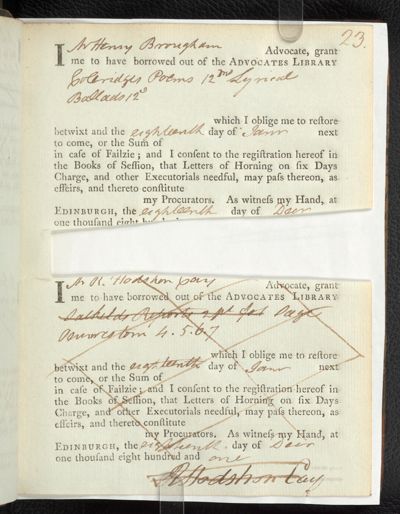 23.
I Mr Henry Brougham Advocate, grant
me to have borrowed out of the ADVOCATES LIBRARY
Coleridges Poems 12mo Lyrical
Ballads 12o
which I oblige me to reſtore
betwixt and the eighteenth day of Janr next
to come, or the Sum of
in caſe of Failzie; and I conſent to the regiſtration hereof in
the Books of Seſſion, that Letters of Horning on ſix Days
Charge, and other Executorials needful, may paſs thereon, as
effeirs, and thereto conſtitute
my Procurators. As witneſs my Hand, at
EDINBURGH, the eighteenth day of Decr
one thouſand eight hundred
I Mr R. Hodshon Cay Advocate, grant
me to have borrowed out of the ADVOCATES LIBRARY
4. 5. 6 7
which I oblige me to reſtore
betwixt and the eighteenth day of Janr next
to come, or the Sum of
in caſe of Failzie; and I conſent to the regiſtration hereof in
the Books of Seſſion, that Letters of Horning on ſix Days
Charge, and other Executorials needful, may paſs thereon, as
effeirs, and thereto conſtitute
my Procurators. As witneſs my Hand, at
EDINBURGH, the eighteenth day of Decr
one thouſand eight hundred and one
R Hodshon Cay